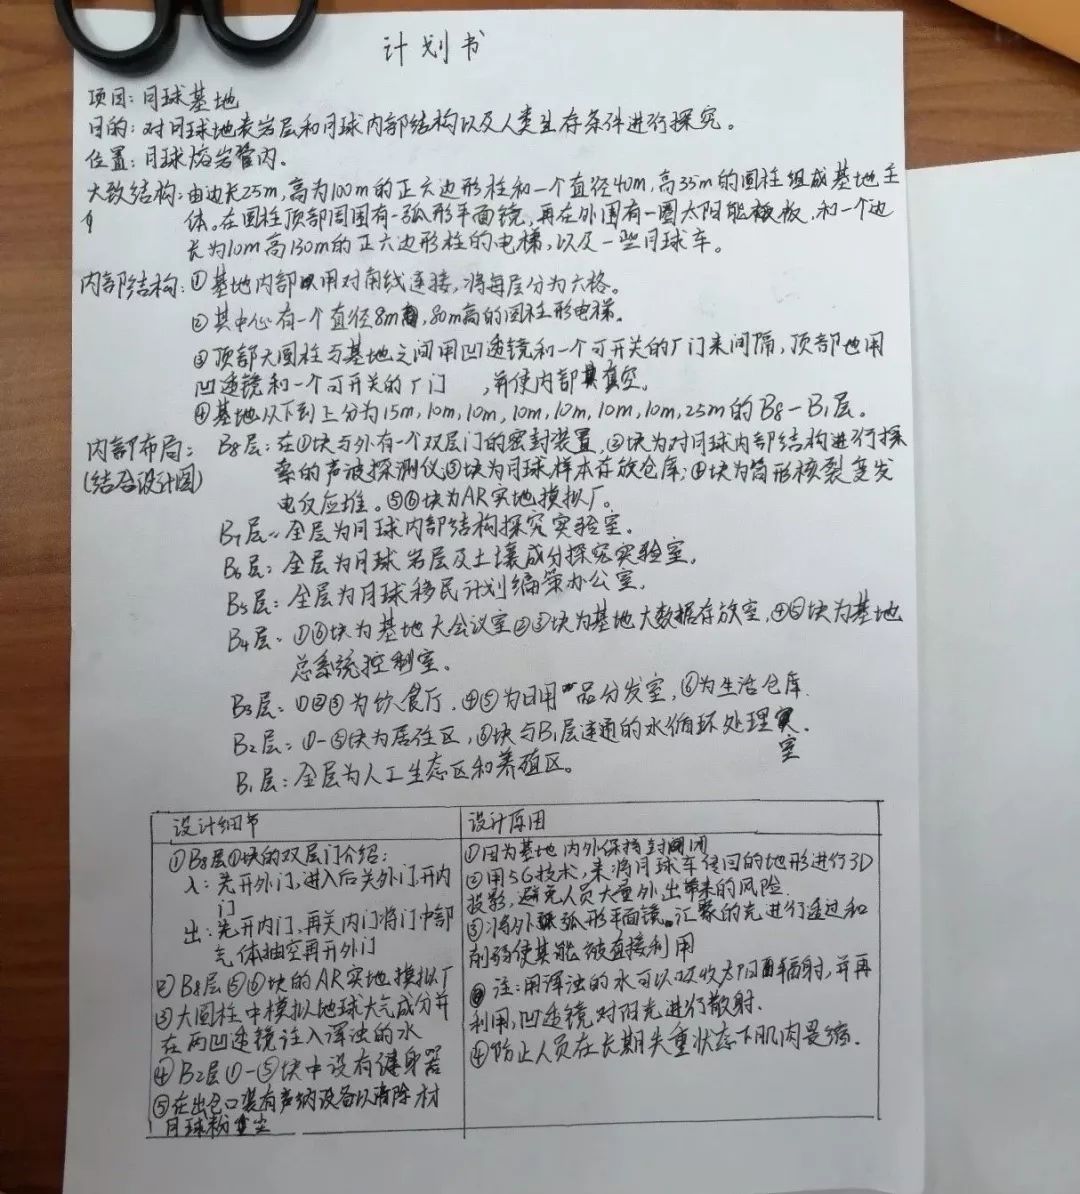 计划书
项目：月球基地
目的：对月球地表岩层和月球内部结构以及人类生存条件进行探究。
位置：月球熔岩管内。
大致结构：由边长25m，高为100m的正六边形柱和一个直径40m，高35m的圆柱组成基地主
体。在圆柱顶部周围有一弧形平面镜，再在外围有一圈太阳能板，和一个边
长为10m高130m的正六边形柱的电梯，以及一些月球车。
内部结构：①基地内部用对角线连接，将每层分为六格。
②其中心有一个直径8m，80m高的圆柱形电梯。
③顶部大圆柱与基地之间用凹透镜和一个可开关的厂门来间隔，顶部也用
凹透镜和一个可开关的厂门，并使内部真空。
④基地从下到上分为15m，10m，10m，10m，10m，10m，10m，25m的B8－B1层。
内部布局：B8层：在①块与外有一个双层门的密封装置，②块为对月球内部结构进行探
(结合设计图) 索的声波探测仪③块为月球样本存放仓库，④块为筒形核裂变发
电仪应堆。⑤⑥块为AR实地模拟厂。
B7层：全层为月球内部结构探究实验室。
B6层：全层为月球岩层及土壤成分探究实验室。
B5层：全层为月球移民计划编策办公室。
B4层：①⑥块为基地大会议室②③块为基地大数据存放室，④⑤块为基地
总系统控制室。
B3层：①②③为饮食厅．④⑤为日用品分发室，⑥为生活仓库．
B2层：①－⑤块为居住区，⑥块与B1层连通的水循环处理
室
B1层：全层为人工生态区和养殖区。
设计细节 设计原因
①B8层①块的双层门介绍：
入：先开外门，进入后关外门，开内
门
出：先开内门，再关内门将门中部
气体抽空再开外门
②B8层⑤⑥块的AR实地模拟厂
③大圆柱中模拟地球大气成分并
在两凹透镜注入浑浊的水
④B2层①－⑤块中设有健身器
⑤在出仓口装有声纳设备以清除
月球粉尘
①因为基地内外保持封闭
②用5G技术，来将月球车传回的地形进行3D
投影，避免人员大量外出带来的风险．
③将外弧形平面镜汇聚的光进行透过和
削弱使其能被直接利用
注：用浑浊的水可以吸收太阳辐射，并再
利用，凹透镜对阳光进行散射．
④防止人员在长期失重状态下肌肉萎缩．